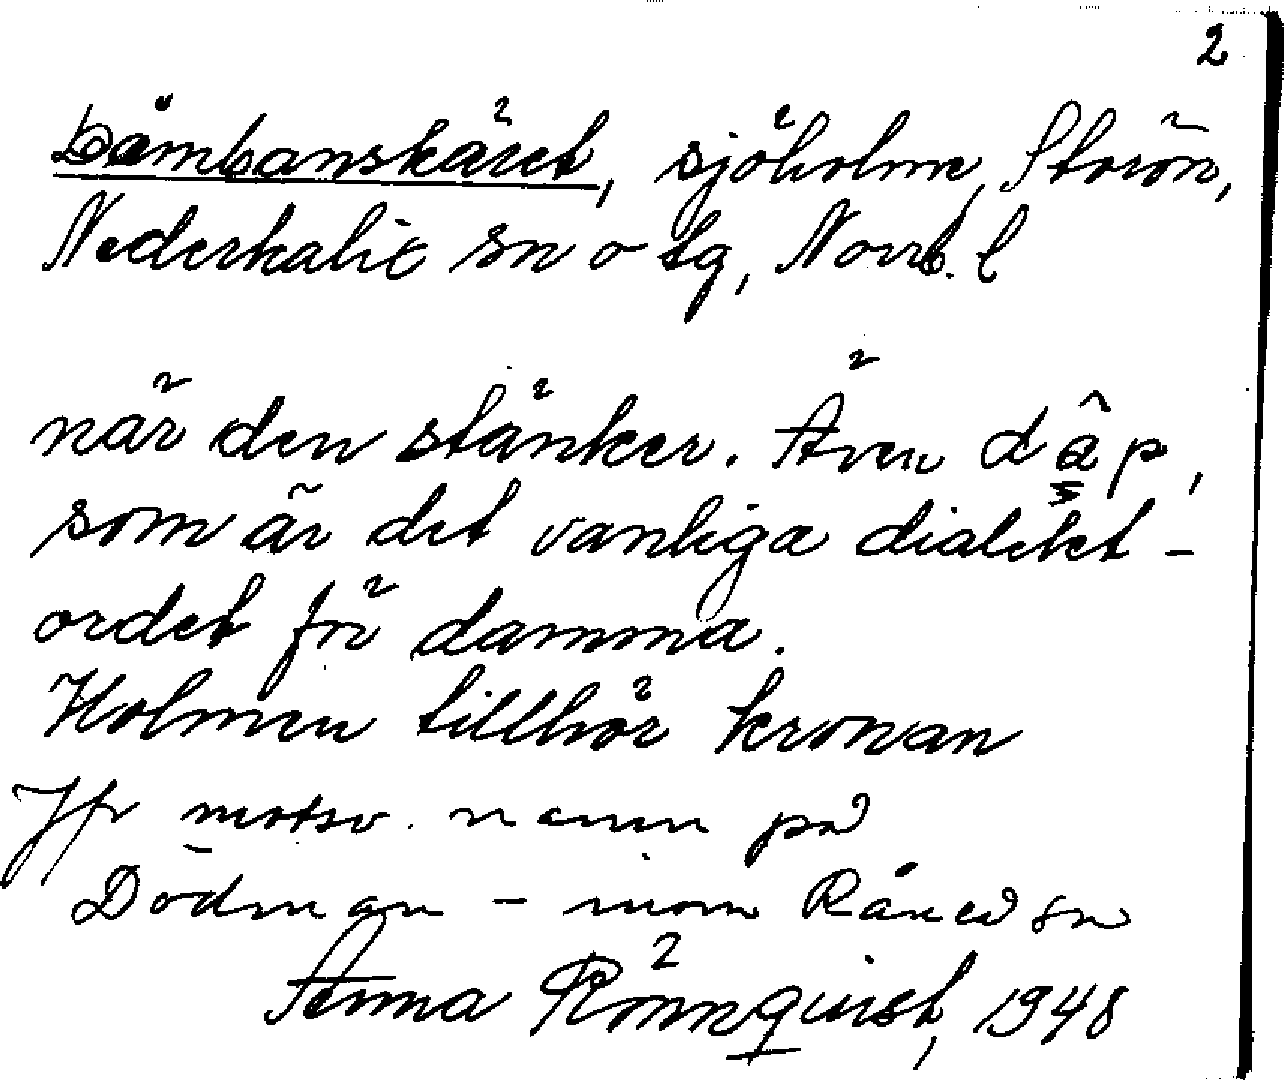 2
Dåmbanskäret, sjöholme, Storön,
Nederkalix sn o tg, Norrb. l
när den stänker. Även dâp,
som är det vanliga dialekt-
ordet för damma.
Holmen tillhör kronan
Jfr motsv. namn på
Dödman - inom Råneå sn
Anna Rönnqvist, 1948